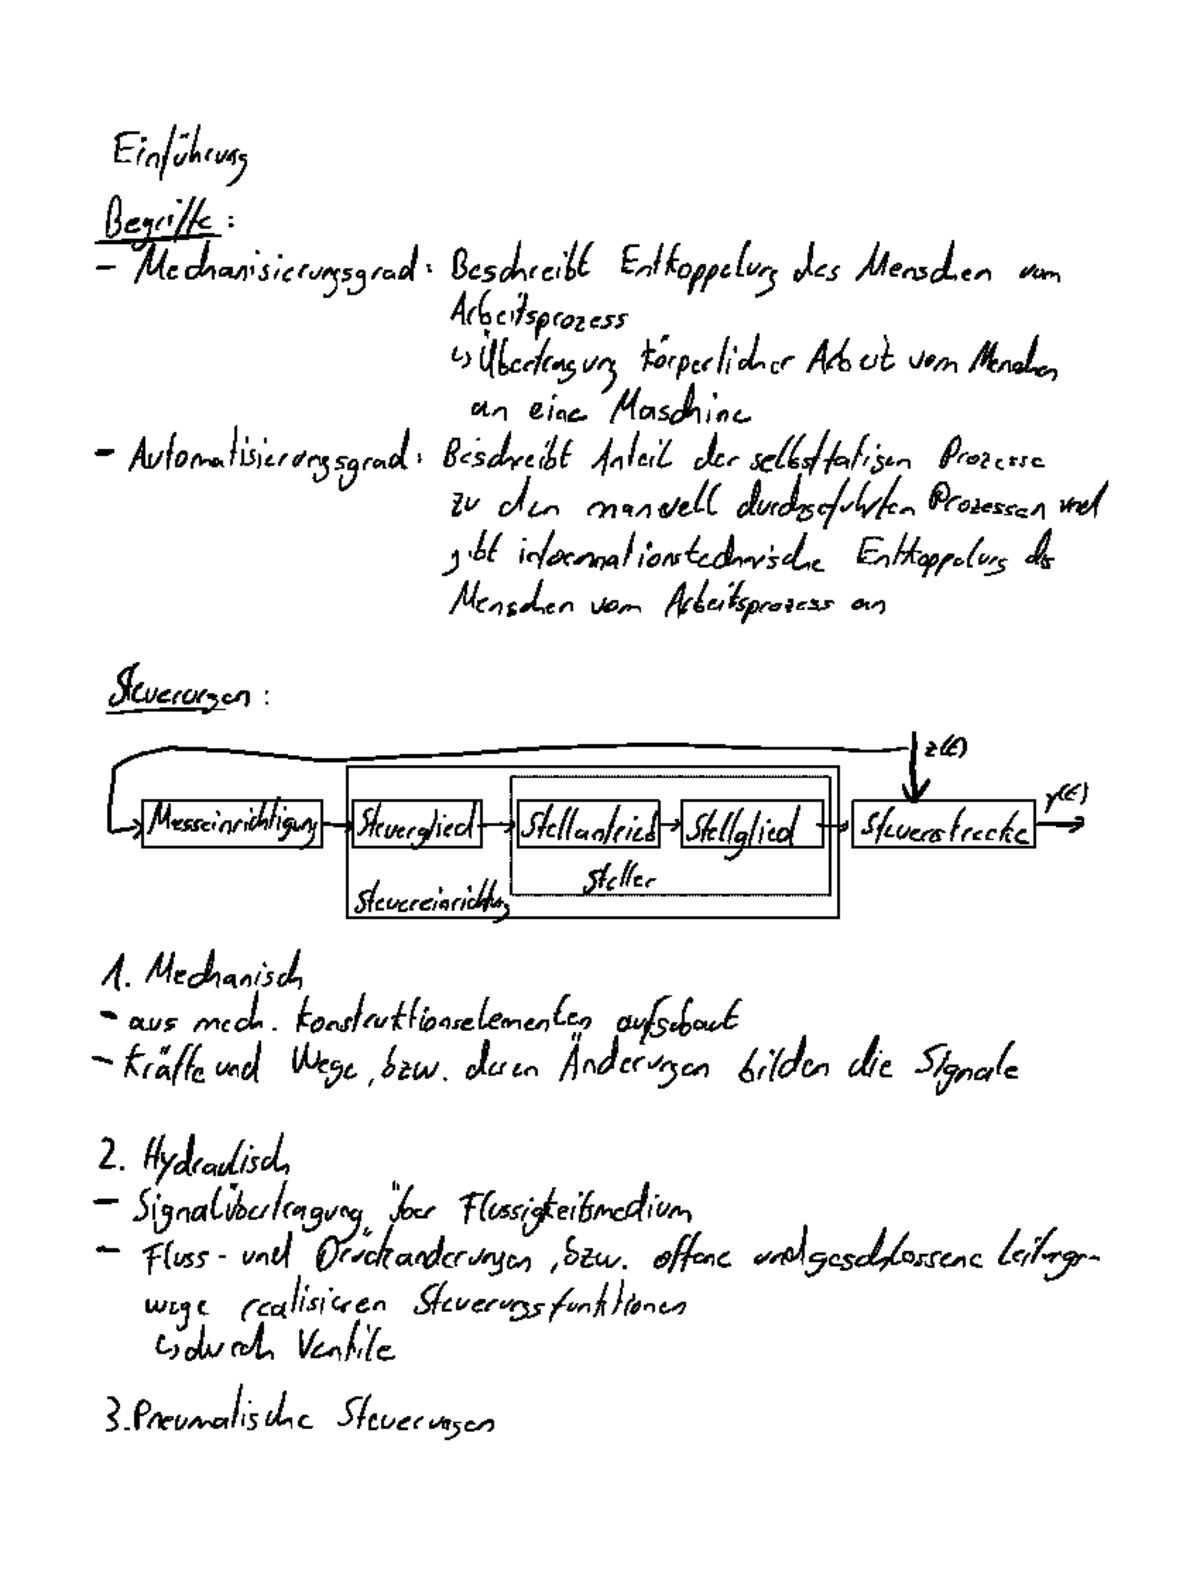 Einführung
Begriffe:
- Mechanisierungsgrad: Beschreibt Entkoppelung des Menschen vom
Arbeitsprozess
↳ Übertragung körperlicher Arbeit vom Menschen
an eine Maschine
- Automatisierungsgrad: Beschreibt Anteil der selbsttätigen Prozesse
zu den manuell durchgeführten Prozessen und
gibt informationstechnische Entkoppelung des
Menschen vom Arbeitsprozess an
Steuerungen:
z(t)
Messeinrichtigung Steuerglied Stellantrieb Stellglied Steuerstrecke y(t)
Steller
Steuereinrichtung
1. Mechanisch
- aus mech. Konstruktionselementen aufgebaut
- Kräfte und Wege, bzw. deren Änderungen bilden die Signale
2. Hydraulisch
- Signalübertragung über Flüssigkeitsmedium
- Fluss- und Druckänderungen, bzw. offene und geschlossene Leitungs-
wege realisieren Steuerungsfunktionen
↳ durch Ventile
3. Pneumatische Steuerungen